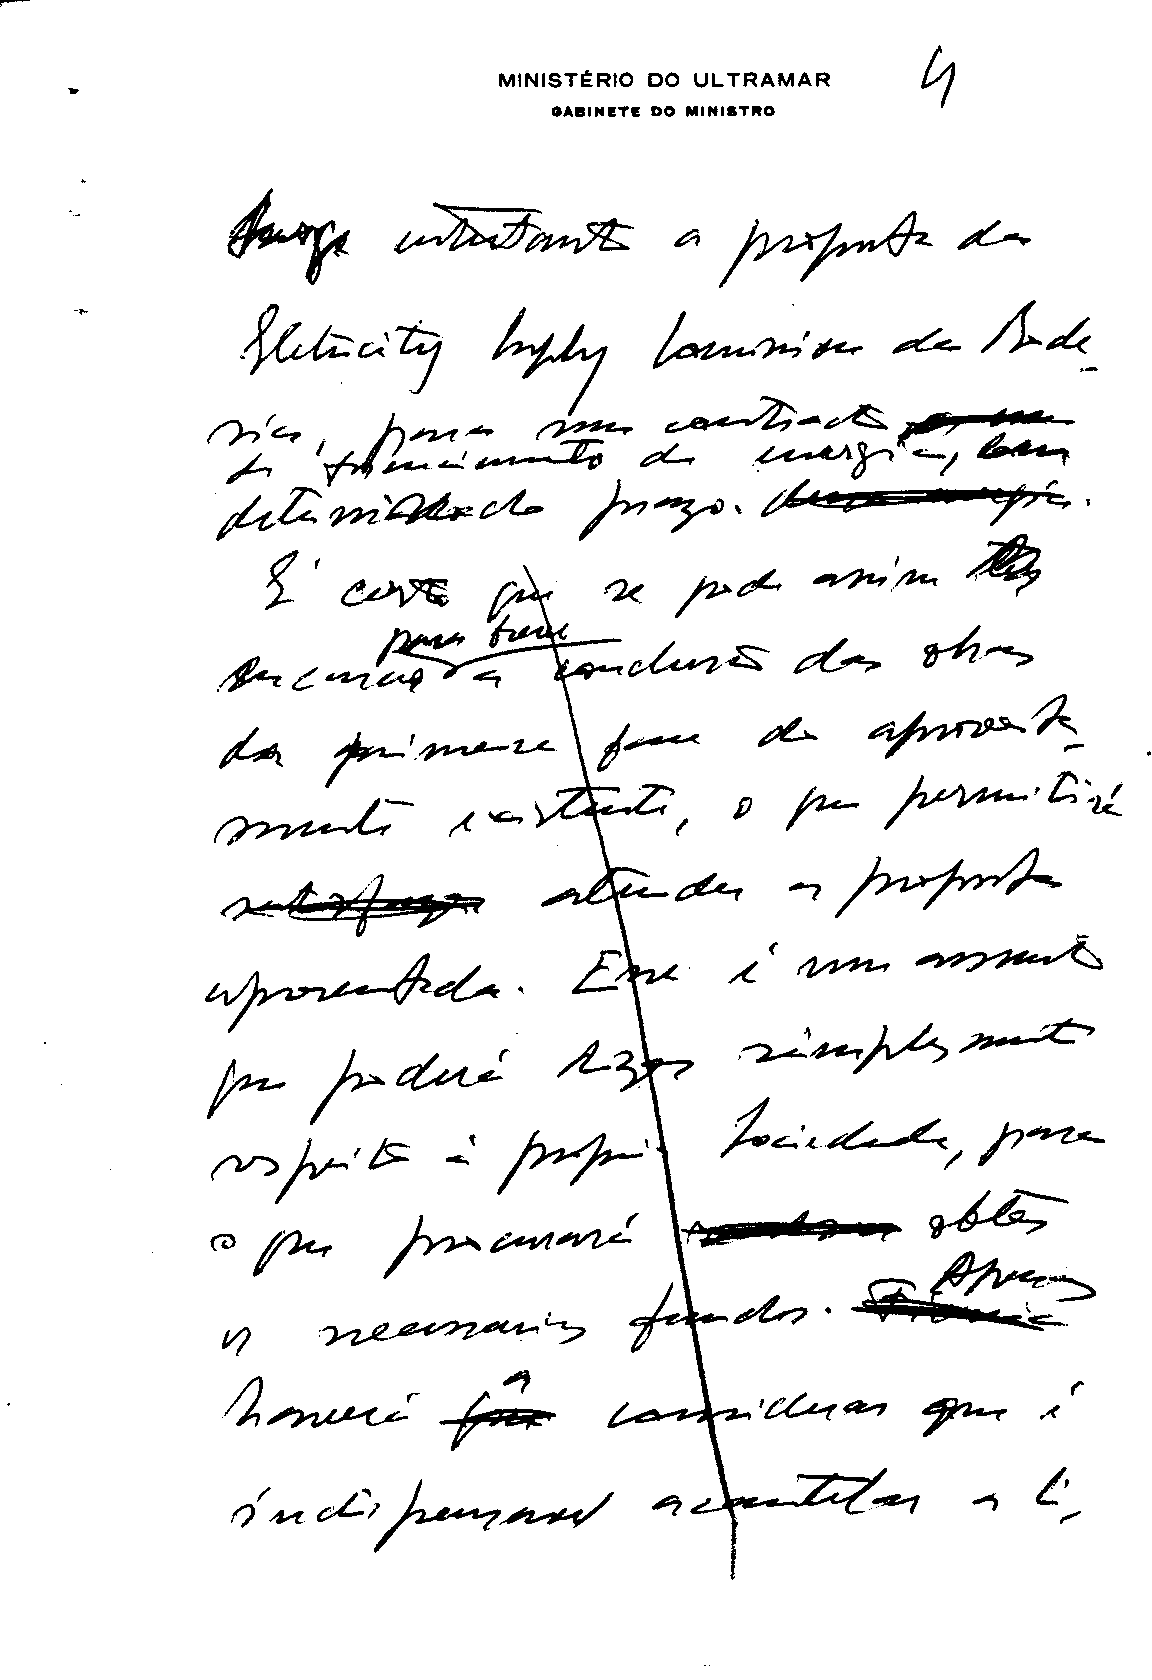 MINISTÉRIO DO ULTRAMAR
GABINETE DO MINISTRO
4
Surge entretanto a proposta da
Eletricity Supply Commission da Rode
sia, para um contracto
de fornecimento de energia, com
determinado prazo.
É certo que se pode assim
para breve
encarar a conclusão das obras
da primeira fase do aproveita
mento existente, o que permitirá
satisfazer atender a proposta
apresentada. Esse é um assunto
que poderá dizer simplesmente
respeito à própria Sociedade, para
o que procurará obter
os necessários fundos. Apenas
haverá a considerar que é
indispensavel acautelar a li